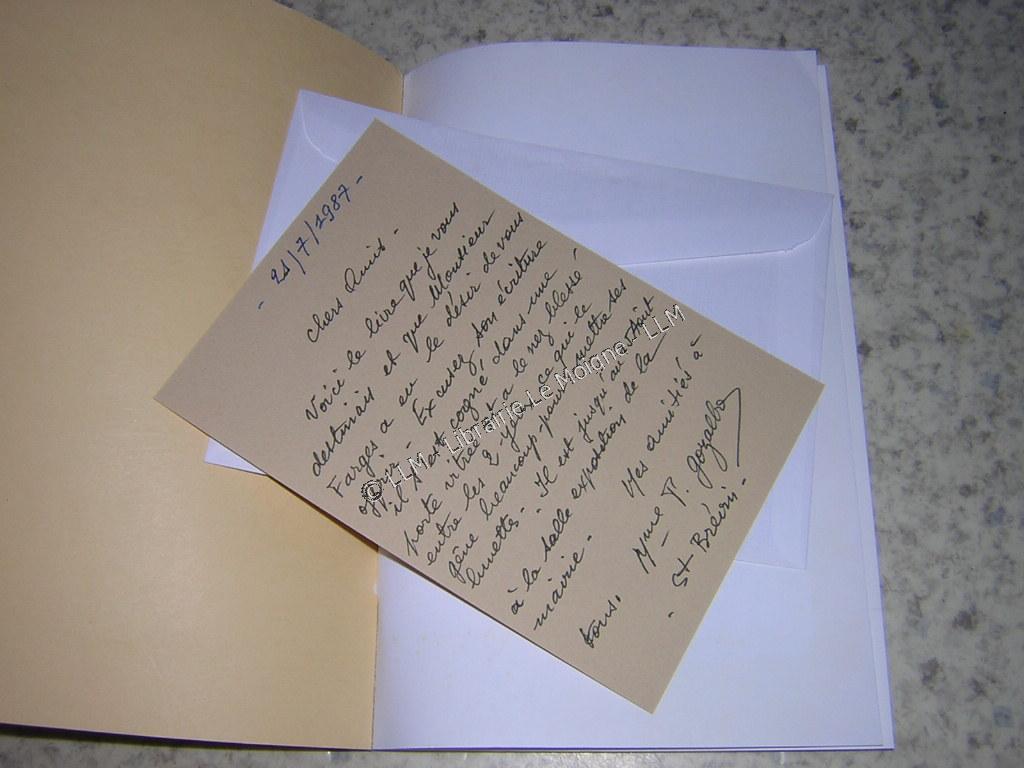 - 21/7/1987 -
Chers Amis -
Voici le livre que je vous
destinais et que Monsieur
Farges a eu le désir de vous
offrir. Excusez son écriture
il s'est cogné, dans une
porte vitrée et a le nez blessé
entre les 2 yeux ce qui le
gêne beaucoup pour mettre ses
lunettes - Il est jusqu'au août
à la salle exposition de la
mairie -
Mes amitiés à
tous.
Mme P. Gozalbo
- St Brévin -
© LLM - Librairie Le Moigne - LLM